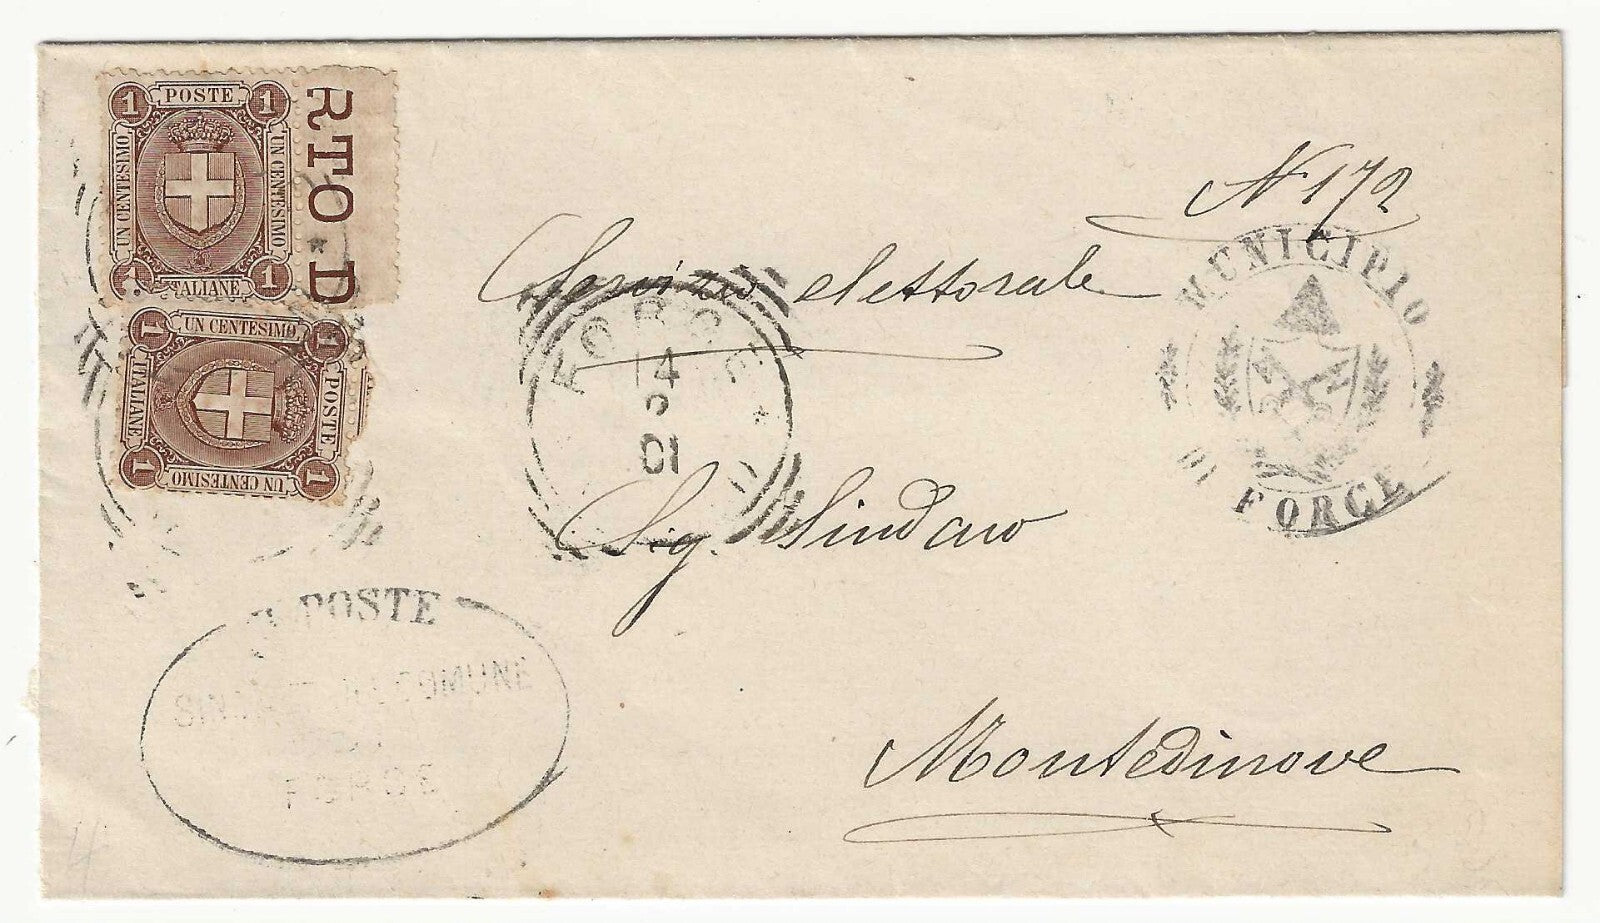 1 POSTE 1
UN CENTESIMO
UN CENTESIMO
1 ITALIANE 1
RTO * D
1 UN CENTESIMO 1
ITALIANE
POSTE
1 UN CENTESIMO 1
N 172
Servizio elettorale
MUNICIPIO
DI FORCE
FORCE
14
01
Sig. Sindaco
Montedinove
POSTE
COMUNE
FORCE
4